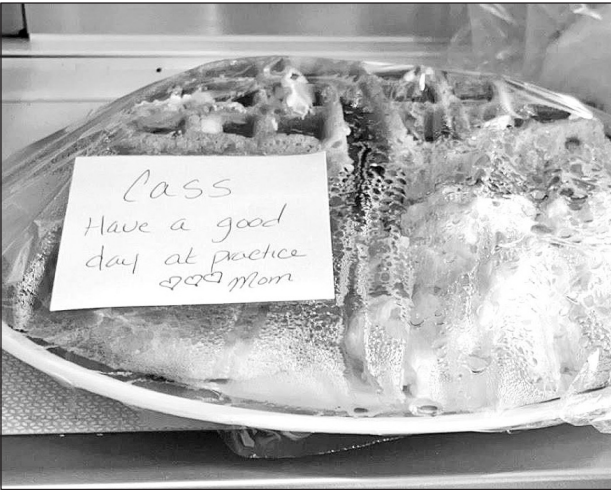 Cass
Have a good
day at practice
♡♡♡ Mom